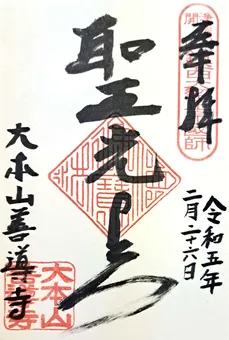 奉拝
令和五年
二月二十六日
聖光上人
大本山善導寺
大本山
善導寺